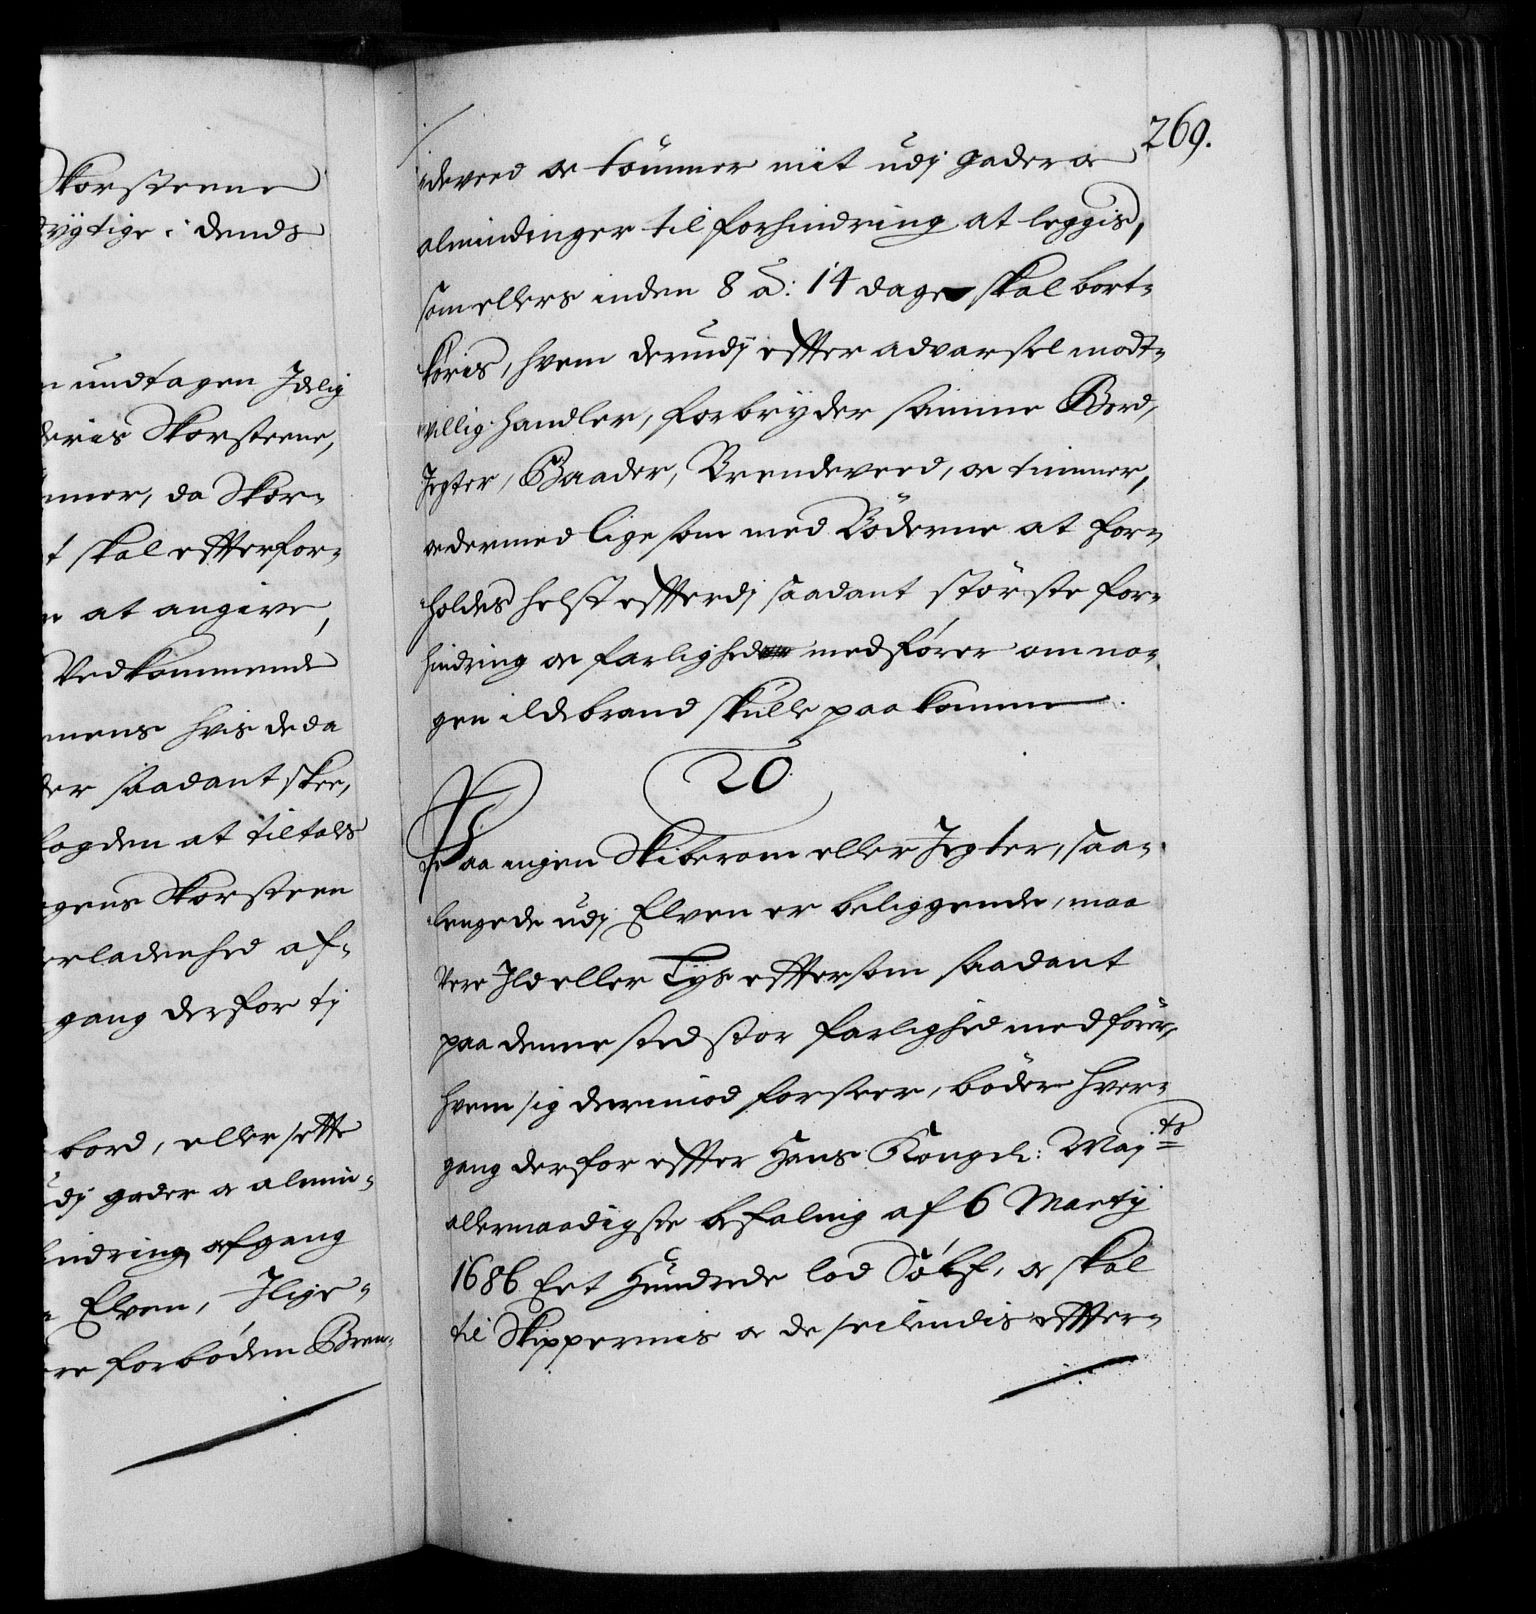 Skorsteene
dygtige i dends
undtagen Idelig
deris Skorsteene,
mer, da Skor-
t skal efterfor-
at angive,
Vedkommende
mens hvis de da
der saadant skee,
fogden at tiltale
gens Skorsteen
erladenhed af-
gang derfor tj
bord, eller sette
udj gader og almin-
hindring afgang
Elven, Ilige-
re forböden Bren-
269.
deveed og tömmer nit udj gader og
almindinger til forhindring at leggis,
som ellers inden 8 a: 14 dage skal bort-
köris, hvem derudj effter advarsel modt-
villig handler, forbryder samme Bord,
Jegter, Baader, Brendeveed, og timmer,
og dermed lige som med Böderne at for-
holdes helst effterdj saadant störste for-
hindring og farlighed medförer om no-
gen ildebrand skulle paakomme.
20
Paa ingen Skiberom eller Jegter, saa-
lenge de udj Elven er beliggende, maa
vere Ild eller Lys efftersom saadant
paa denne sted stor farlighed medförer,
hvem sig derimod forseer, böder hver-
gang derfor effter Hans Kongel: Maj:ts
allernaadigste befaling af 6 Martij
1686 Eet Hundrede lod Sölf, og skal
til Skippernis og de seilendis effter-